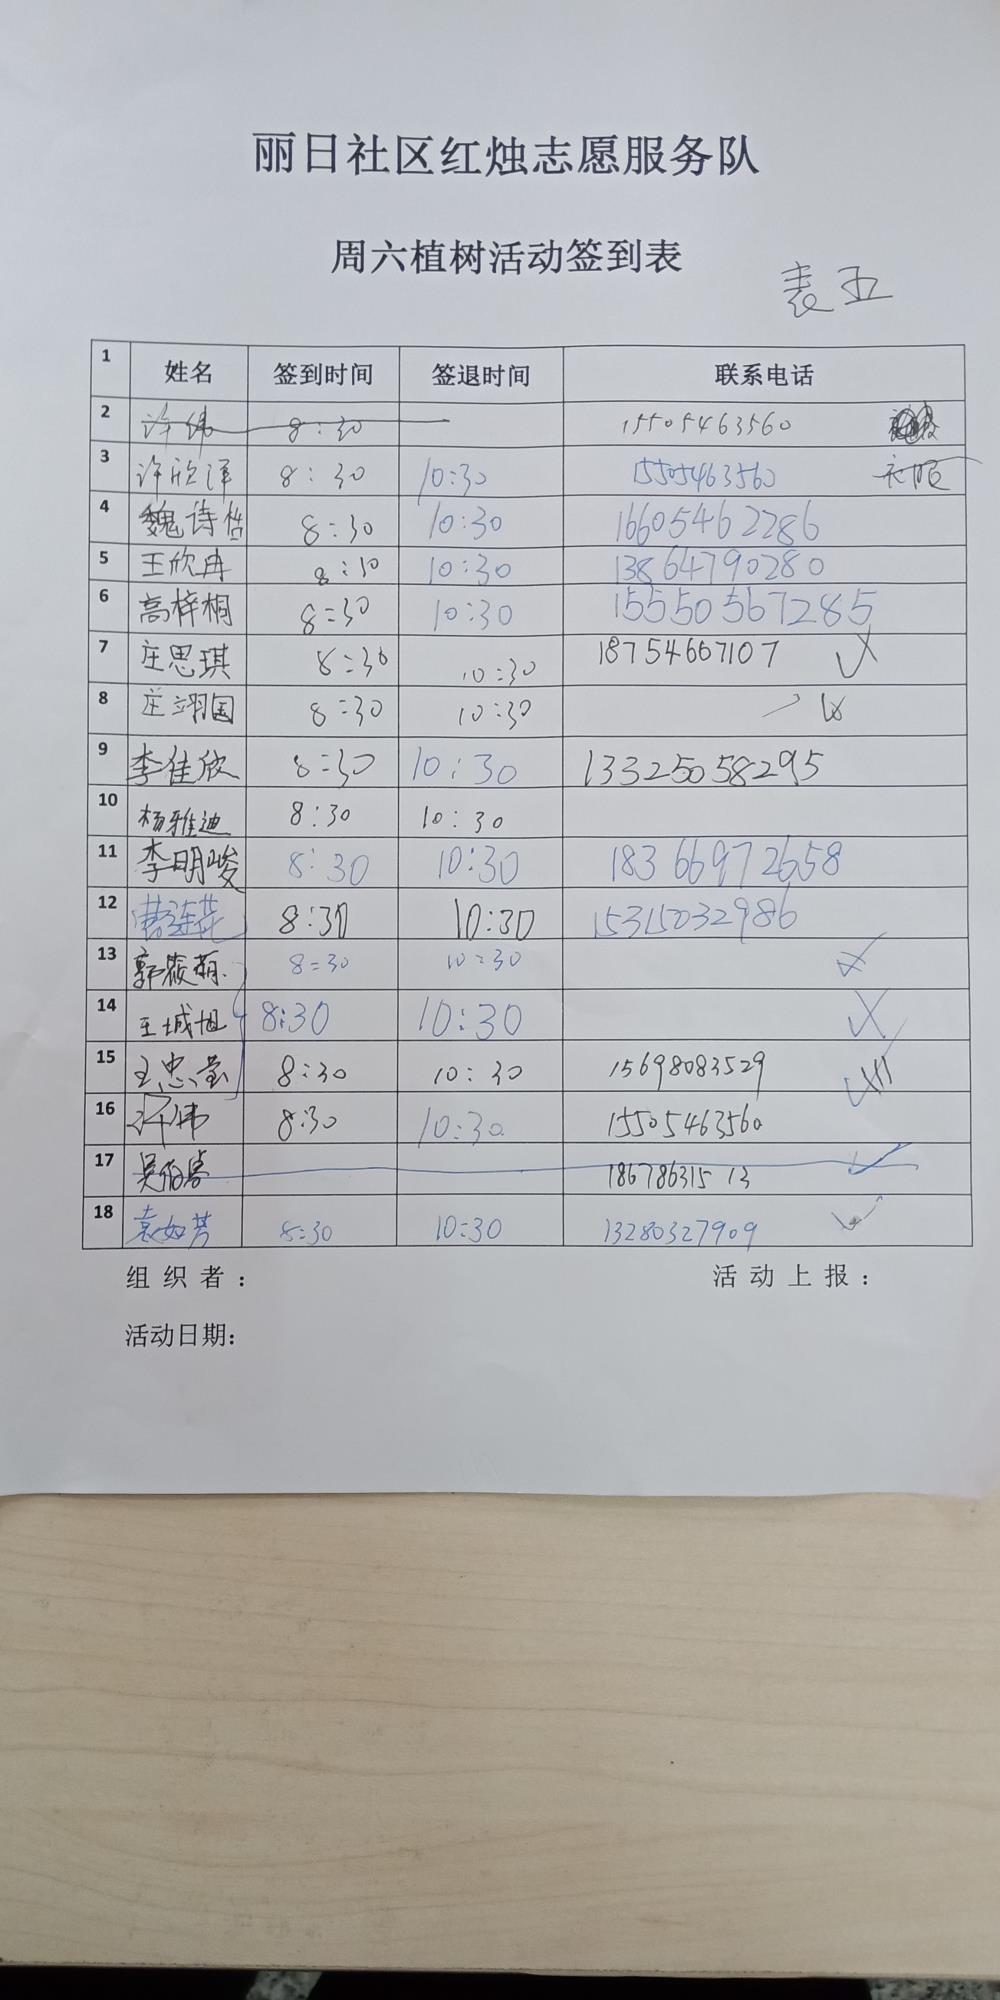 丽日社区红烛志愿服务队
周六植树活动签到表
表五
1 姓名 签到时间 签退时间 联系电话
2 许伟 8:30 15505463560
3 许欣泽 8:30 10:30 15505463560 衣服
4 魏诗哲 8:30 10:30 16605462286
5 王欣冉 8:30 10:30 13864790280
6 高梓桐 8:30 10:30 155505567285
7 庄思琪 8:30 10:30 18754667107
8 庄翊国 8:30 10:30
9 李佳欣 8:30 10:30 13325058295
10 杨雅迪 8:30 10:30
11 李明峻 8:30 10:30 18366972658
12 曹莲花 8:30 10:30 15315032986
13 郭筱萌 8:30 10:30
14 王城旭 8:30 10:30
15 王忠莹 8:30 10:30 15698083529
16 许伟 8:30 10:30 15505463560
17 吴伯睿 18678631513
18 袁如芳 8:30 10:30 13280327909
组织者： 活动上报：
活动日期：